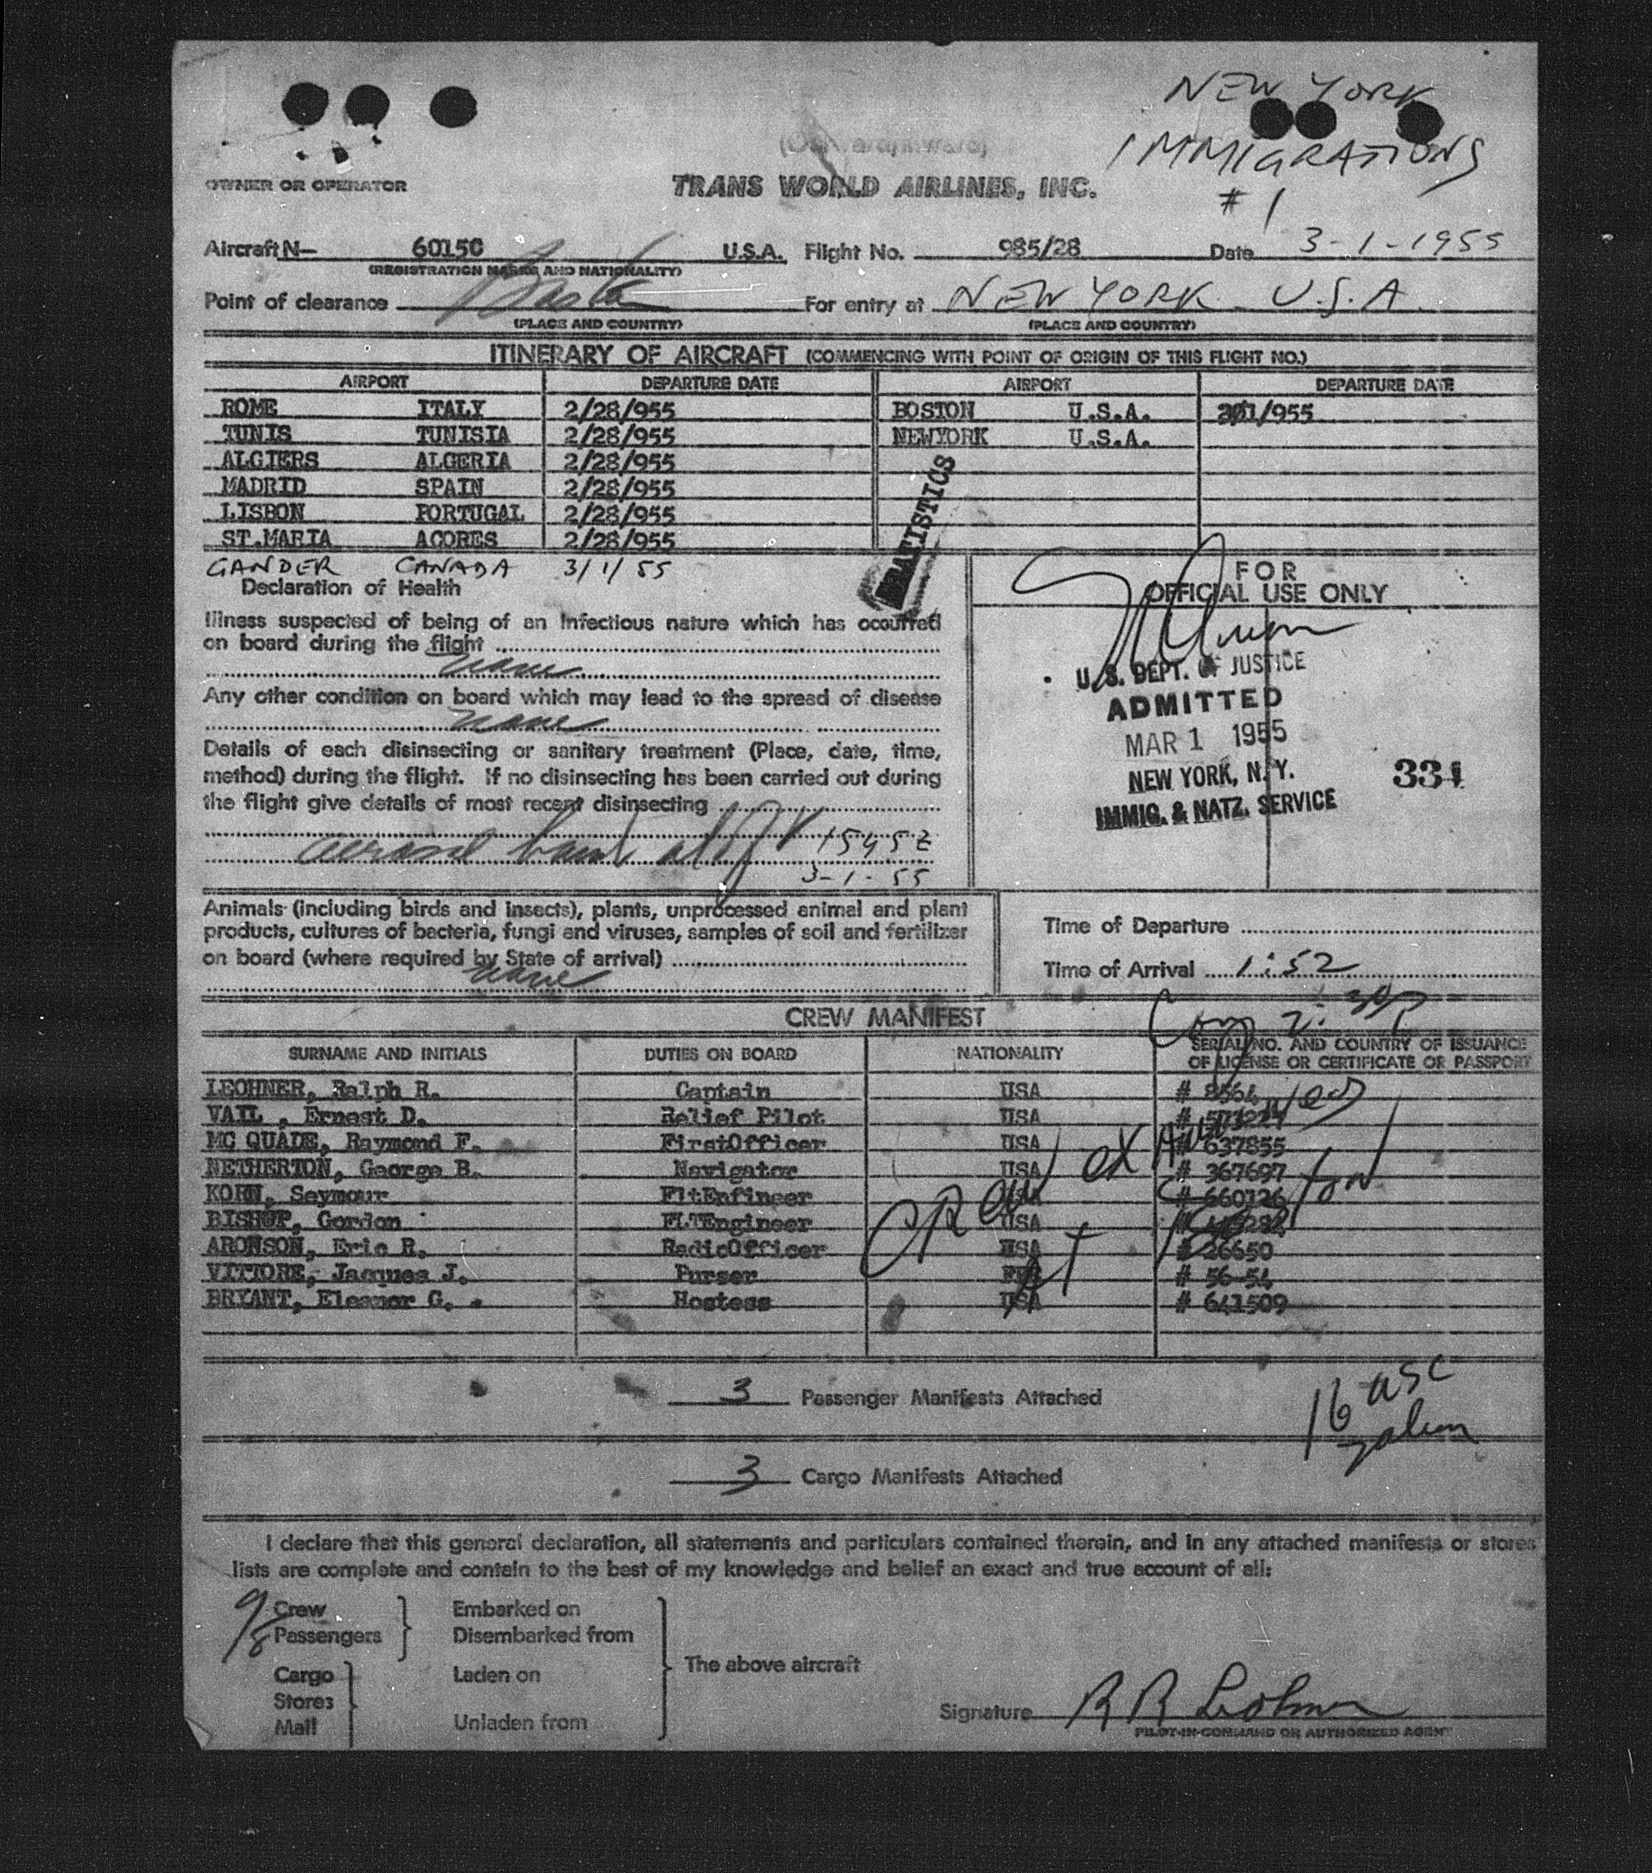 NEW YORK
IMMIGRATIONS
# 1
OWNER OR OPERATOR
TRANS WORLD AIRLINES, INC.
Aircraft N— 6015C U.S.A. Flight No. 985/28 Date 3-1-1955
(REGISTRATION MARKS AND NATIONALITY)
Point of clearance Boston For entry at NEW YORK U.S.A.
(PLACE AND COUNTRY) (PLACE AND COUNTRY)
ITINERARY OF AIRCRAFT (COMMENCING WITH POINT OF ORIGIN OF THIS FLIGHT NO.)
AIRPORT DEPARTURE DATE AIRPORT DEPARTURE DATE
ROME ITALY 2/28/955 BOSTON U.S.A. /955
TUNIS TUNISIA 2/28/955 NEWYORK U.S.A.
ALGIERS ALGERIA 2/28/955
MADRID SPAIN 2/28/955
LISBON PORTUGAL 2/28/955
ST.MARIA ACORES 2/28/955
GANDER CANADA 3/1/55
Declaration of Health
Illness suspected of being of an infectious nature which has occurred
on board during the flight
none
Any other condition on board which may lead to the spread of disease
none
Details of each disinsecting or sanitary treatment (Place, date, time,
method) during the flight. If no disinsecting has been carried out during
the flight give details of most recent disinsecting
aerosol bomb 1545Z
3-1-55
STATISTICS
FOR
OFFICIAL USE ONLY
U.S. DEPT. OF JUSTICE
ADMITTED
MAR 1 1955
NEW YORK, N.Y.
IMMIG. & NATZ. SERVICE
334
Animals (including birds and insects), plants, unprocessed animal and plant
products, cultures of bacteria, fungi and viruses, samples of soil and fertilizer
on board (where required by State of arrival)
none
Time of Departure
Time of Arrival 1:52
CREW MANIFEST
SURNAME AND INITIALS DUTIES ON BOARD NATIONALITY SERIAL NO. AND COUNTRY OF ISSUANCE
OF LICENSE OR CERTIFICATE OR PASSPORT
LEOHNER, Ralph R. Captain USA # 8564
VAIL , Ernest D. Relief Pilot USA #
MC QUADE, Raymond F. FirstOfficer USA # 637855
NETHERTON, George B. Navigator USA # 367697
KORN, Seymour FltEnfineer USA # 660126
BISHOP, Gordon FLTEngineer USA #
ARONSON, Eric R. RadioOfficer USA # 26650
VITTORE, Jacques J. Purser # 56-54
BRYANT, Eleanor G. Hostess USA # 641509
Crew examined
at Boston
3 Passenger Manifests Attached
16 USC
3 Cargo Manifests Attached
I declare that this general declaration, all statements and particulars contained therein, and in any attached manifests or stores
lists are complete and contain to the best of my knowledge and belief an exact and true account of all:
9/8 Crew
Passengers
Embarked on
Disembarked from
Cargo
Stores
Mail
Laden on
Unladen from
The above aircraft
Signature R R Leohner
PILOT-IN-COMMAND OR AUTHORIZED AGENT